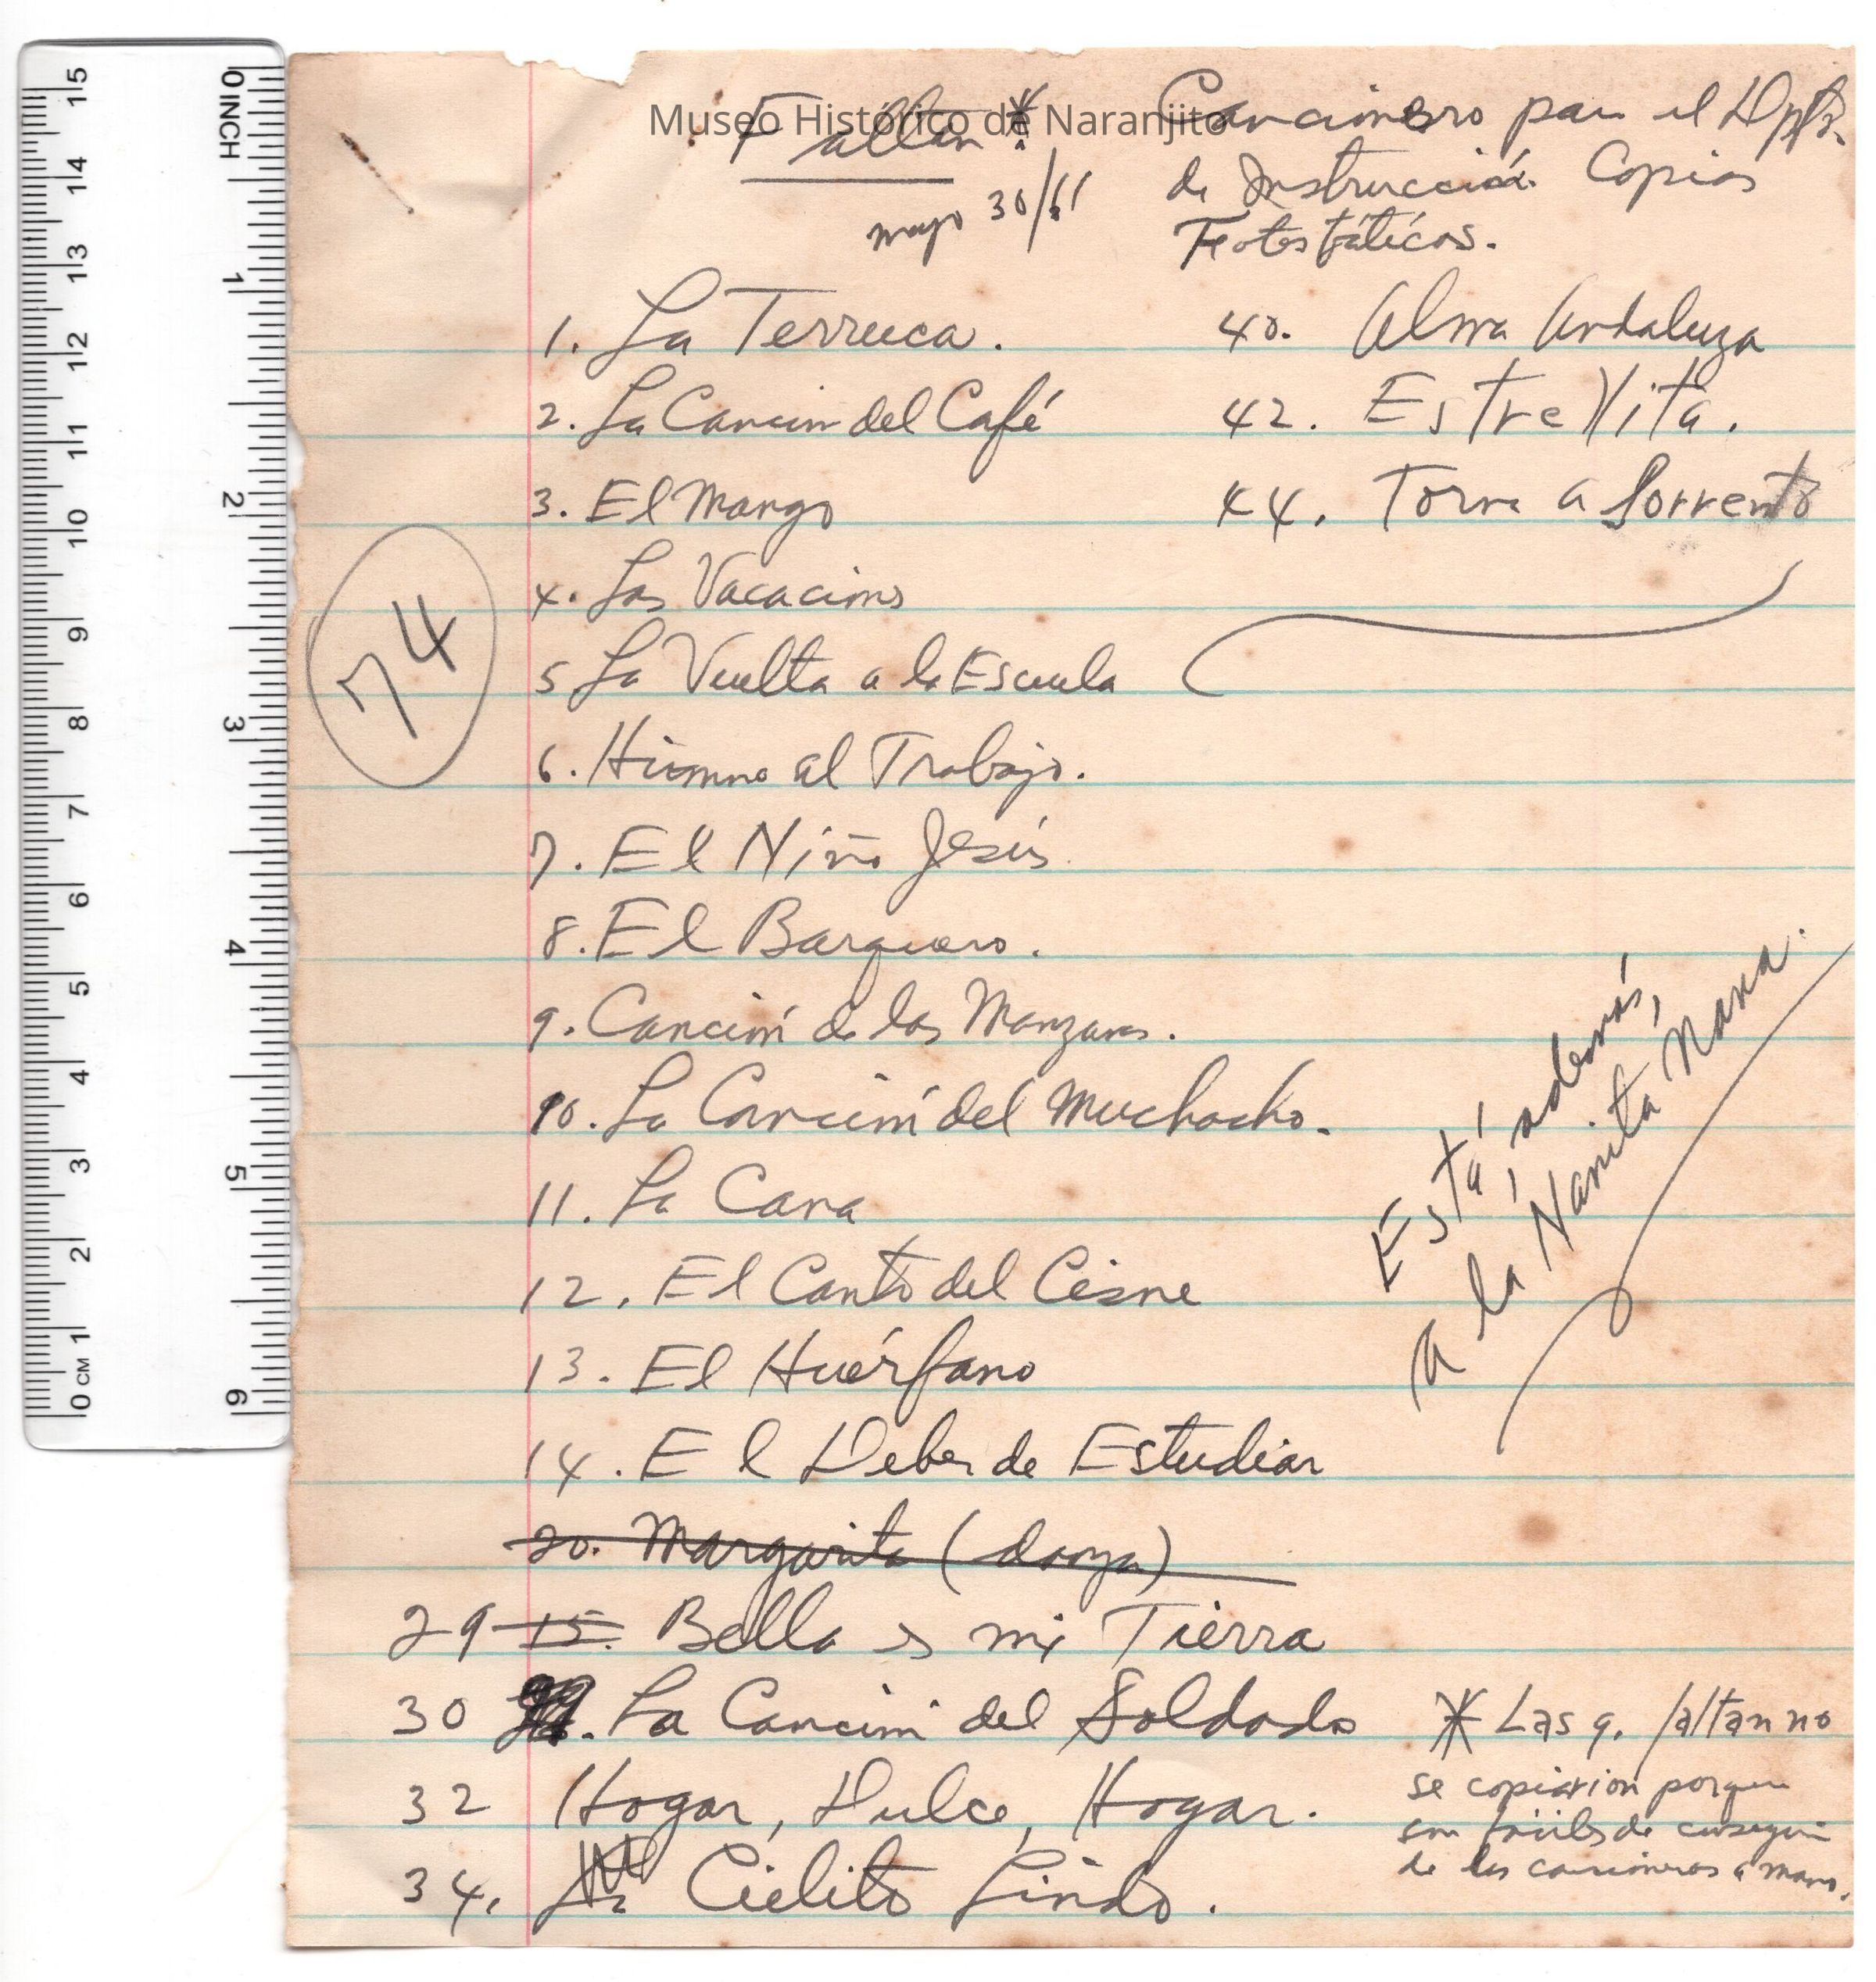 Museo Histórico de Naranjito
Faltan *
mayo 30/61
Cancionero para el Dpto.
de Instrucción. Copias
Fotostáticas.
1. La Terruca.
2. La Cancion del Café
3. El Mango
4. Las Vacaciones
5 La Vuelta a la Escuela
6. Himno al Trabajo.
7. El Niño Jesús.
8. El Barquero.
9. Canción de las Manzanas.
10. La Canción del Muchacho.
11. La Cana
12. El Canto del Cisne
13. El Huérfano
14. El Deber de Estudiar
20. Margarita (danza)
29 15. Bella es mi Tierra
30 La Canción del Soldado
32 Hogar, Dulce, Hogar.
34. Cielito Lindo.
40. Alma Andaluza
42. Estrellita.
44. Torna a Sorrento
74
Está, además,
A la Nanita Nana.
* Las q. faltan no
se copiarion porque
son fáciles de conseguir
de los cancioneros a mano.
0 INCH 1 2 3 4 5 6
0 CM 1 2 3 4 5 6 7 8 9 10 11 12 13 14 15